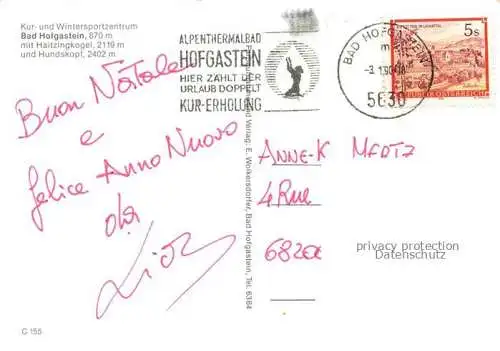 Kur- und Wintersportzentrum
Bad Hofgastein, 870 m
mit Haitzingkogel, 2119 m
und Hundskopf, 2402 m
ALPENTHERMALBAD
HOFGASTEIN
HIER ZÄHLT DER
URLAUB DOPPELT
KUR-ERHOLUNG
BAD HOFGASTEIN
5630
5s
REPUBLIK ÖSTERREICH
Buon Natale
e
felice Anno Nuovo
Verlag: E. Wolkersdorfer, Bad Hofgastein, Tel. 6364
ANNE-K MERTZ
4 RUE
privacy protection
Datenschutz
C 155